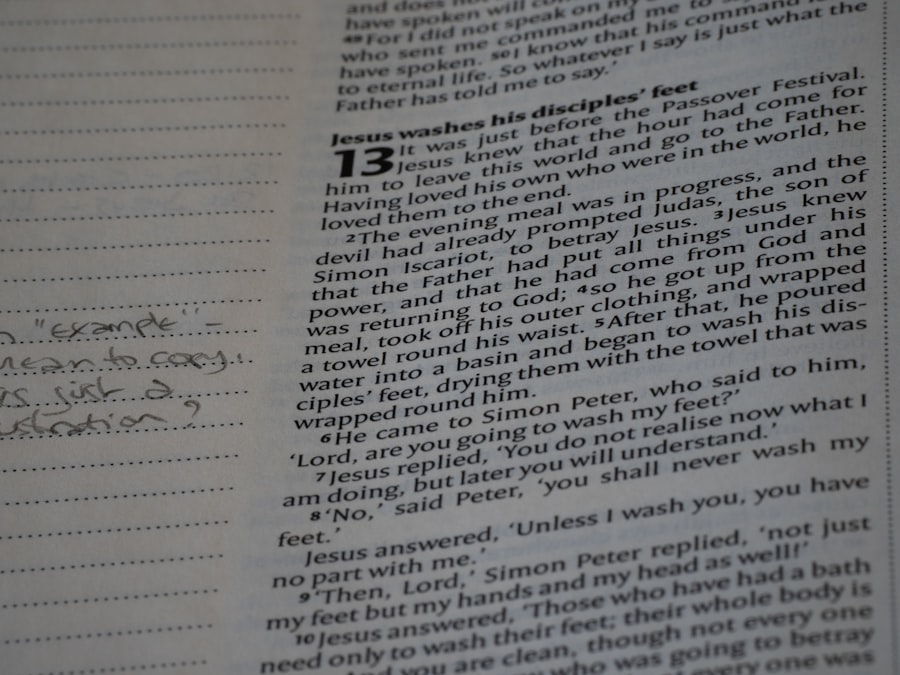 and does no
have spoken will con
⁴⁹For I did not speak on my
who sent me commanded me to
have spoken. ⁵⁰I know that his command
to eternal life. So whatever I say is just what the
Father has told me to say.’
Jesus washes his disciples’ feet
13 It was just before the Passover Festival.
Jesus knew that the hour had come for
him to leave this world and go to the Father.
Having loved his own who were in the world, he
loved them to the end.
²The evening meal was in progress, and the
devil had already prompted Judas, the son of
Simon Iscariot, to betray Jesus. ³Jesus knew
that the Father had put all things under his
power, and that he had come from God and
was returning to God; ⁴so he got up from the
meal, took off his outer clothing, and wrapped
a towel round his waist. ⁵After that, he poured
water into a basin and began to wash his dis-
ciples’ feet, drying them with the towel that was
wrapped round him.
⁶He came to Simon Peter, who said to him,
‘Lord, are you going to wash my feet?’
⁷Jesus replied, ‘You do not realise now what I
am doing, but later you will understand.’
⁸‘No,’ said Peter, ‘you shall never wash my
feet.’
Jesus answered, ‘Unless I wash you, you have
no part with me.’
⁹‘Then, Lord,’ Simon Peter replied, ‘not just
my feet but my hands and my head as well!’
¹⁰Jesus answered, ‘Those who have had a bath
need only to wash their feet; their whole body is
And you are clean, though not every one
who was going to betray
every one was
"example" –
mean to copy.
is just a
ustration?